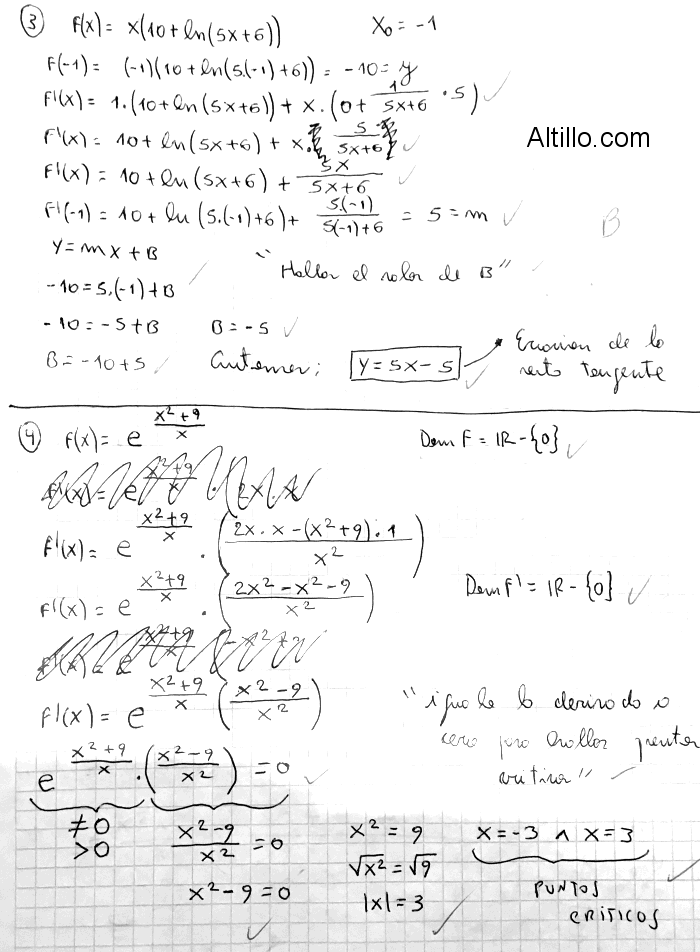 ③ F(x) = x(10+ln(5x+6)) X₀ = -1
F(-1) = (-1)(10+ln(5.(-1)+6)) = -10 = y
F'(x) = 1.(10+ln(5x+6)) + x.(0+ 1/(5x+6) . 5)
Altillo.com
F'(x) = 10+ln(5x+6) + x. 5/(5x+6)
F'(x) = 10+ln(5x+6) + 5x/(5x+6)
F'(-1) = 10+ln(5.(-1)+6) + 5.(-1)/(5(-1)+6) = 5 = m
B
Y = mx+B
"Hallar el valor de B"
-10 = 5.(-1)+B
-10 = -5+B B = -5
B = -10+5
Y = 5x-5
Ecuacion de la
recta tangente
④ F(x) = e^((x²+9)/x) Dom F = IR-{0}
F'(x) = e^((x²+9)/x) . ((2x.x-(x²+9).1)/x²)
F'(x) = e^((x²+9)/x) . ((2x²-x²-9)/x²) Dom F' = IR-{0}
F'(x) = e^((x²+9)/x) ((x²-9)/x²)
"igualo la derivada a
cero para hallar puntos
criticos"
e^((x²+9)/x) . ((x²-9)/x²) = 0
≠0
>0
(x²-9)/x² = 0
x²-9 = 0
x² = 9
√x² = √9
|x| = 3
x=-3 ∧ x=3
PUNTOS
CRITICOS